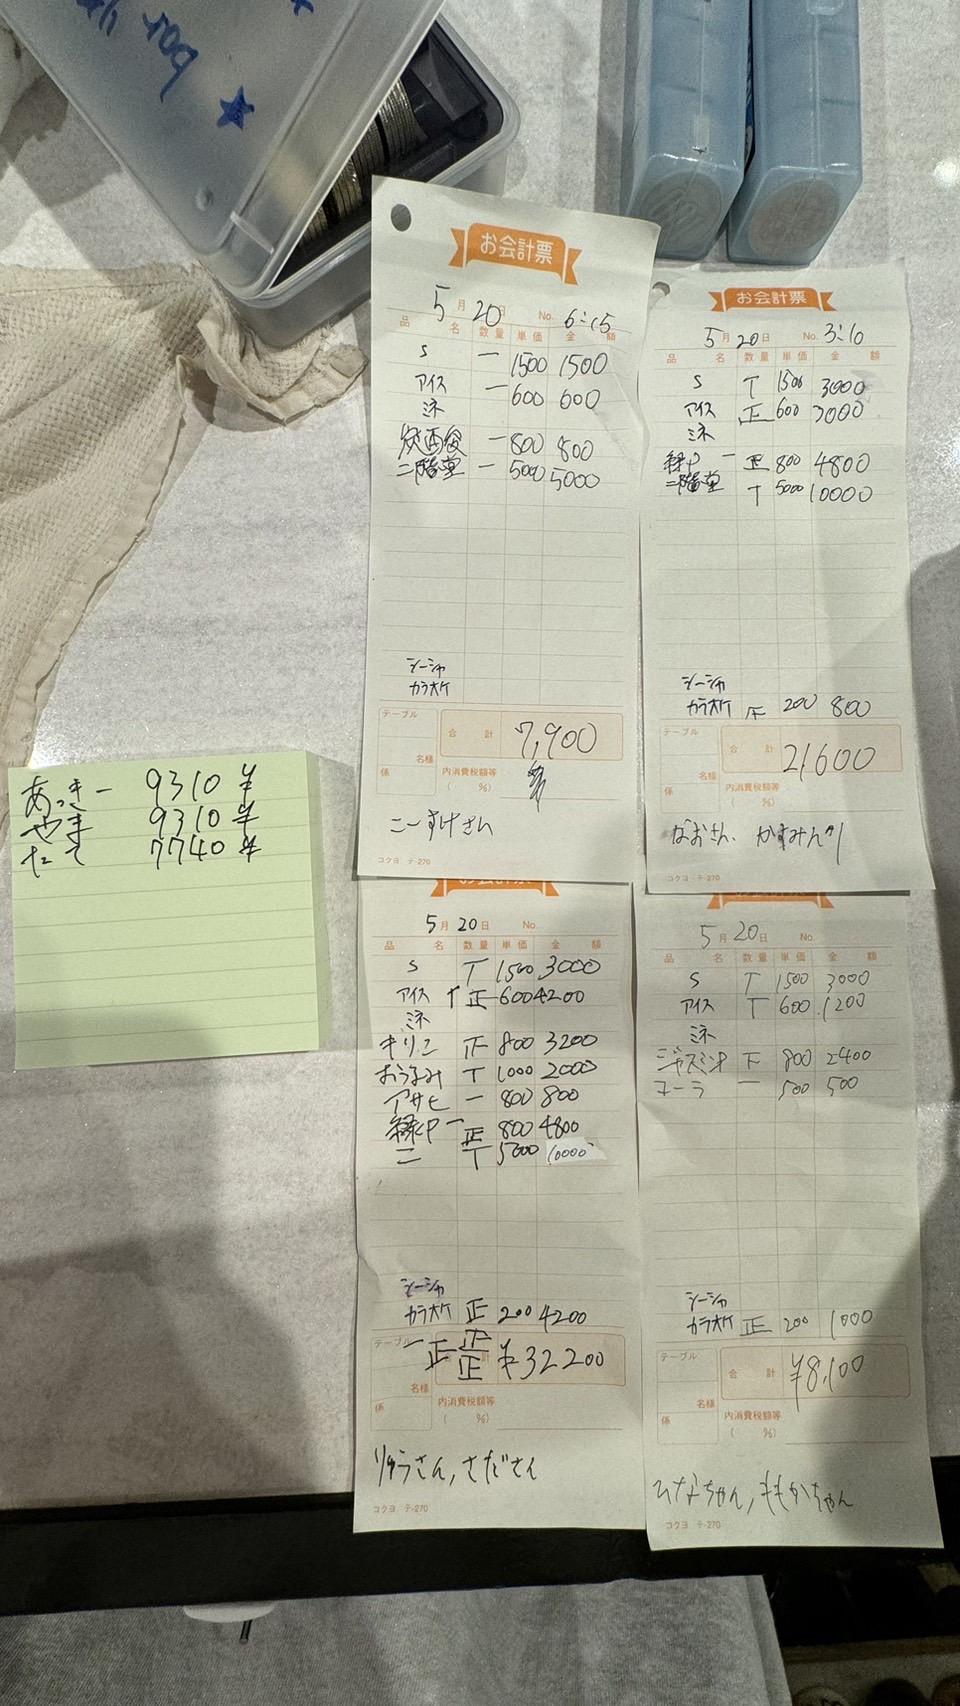 お会計票
5月20日 No. 6:15
品 名 数量 単価 金 額
S 一 1500 1500
アイス 一 600 600
ミネ
一 800 800
二階堂 一 5000 5000
シーシャ
カラオケ
テーブル
合 計 7,900
名様
係
内消費税額等
( %)
こーすけさん
コクヨ テ-270
お会計票
5月20日 No. 3:10
品 名 数量 単価 金 額
S T 1500 3000
アイス 正 600 3000
ミネ
緑P 一正 800 4800
二階堂 T 5000 10000
シーシャ
カラオケ 正 200 800
テーブル
合 計 21600
名様
係
内消費税額等
( %)
なおさん、
コクヨ テ-270
あっきー 9310¥
やま 9310¥
たて 7740¥
お会計票
5月20日 No.
品 名 数量 単価 金 額
S T 1500 3000
アイス T正 600 4200
ミネ
キリン 正 800 3200
おうるみ T 1000 2000
アサヒ 一 800 800
緑P 一正 800 4800
二 T 5000 10000
シーシャ
カラオケ 正 200 4200
テーブル 一正正正
合 計 ¥32200
名様
係
内消費税額等
( %)
りゅうさん,さださん
コクヨ テ-270
5月20日 No.
品 名 数量 単価 金 額
S T 1500 3000
アイス T 600 1200
ミネ
ジャスミン 下 800 2400
コーラ 一 500 500
シーシャ
カラオケ 正 200 1000
テーブル
合 計 ¥8,100
名様
係
内消費税額等
( %)
ひなちゃん,ももかちゃん
コクヨ テ-270